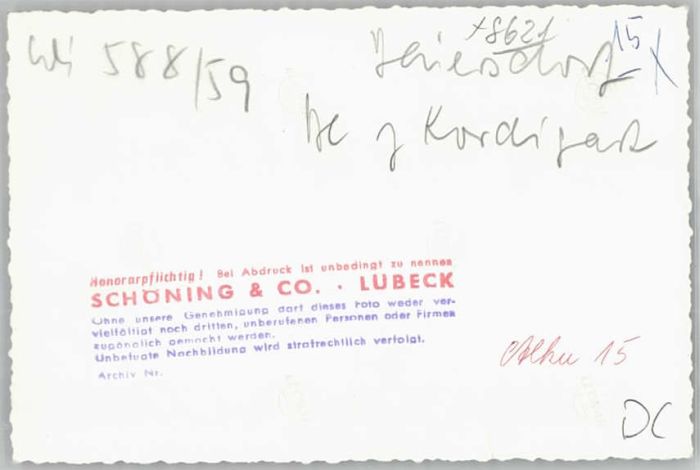 +8621 15
588/59
X
z Kordigast
Honorarpflichtig! Bei Abdruck ist unbedingt zu nennen
SCHÖNING & CO. · LÜBECK
Ohne unsere Genehmigung darf dieses Foto weder ver-
vielfältigt noch dritten, unberufenen Personen oder Firmen
zugänglich gemacht werden.
Unbefugte Nachbildung wird strafrechtlich verfolgt.
Archiv Nr.
15
DC